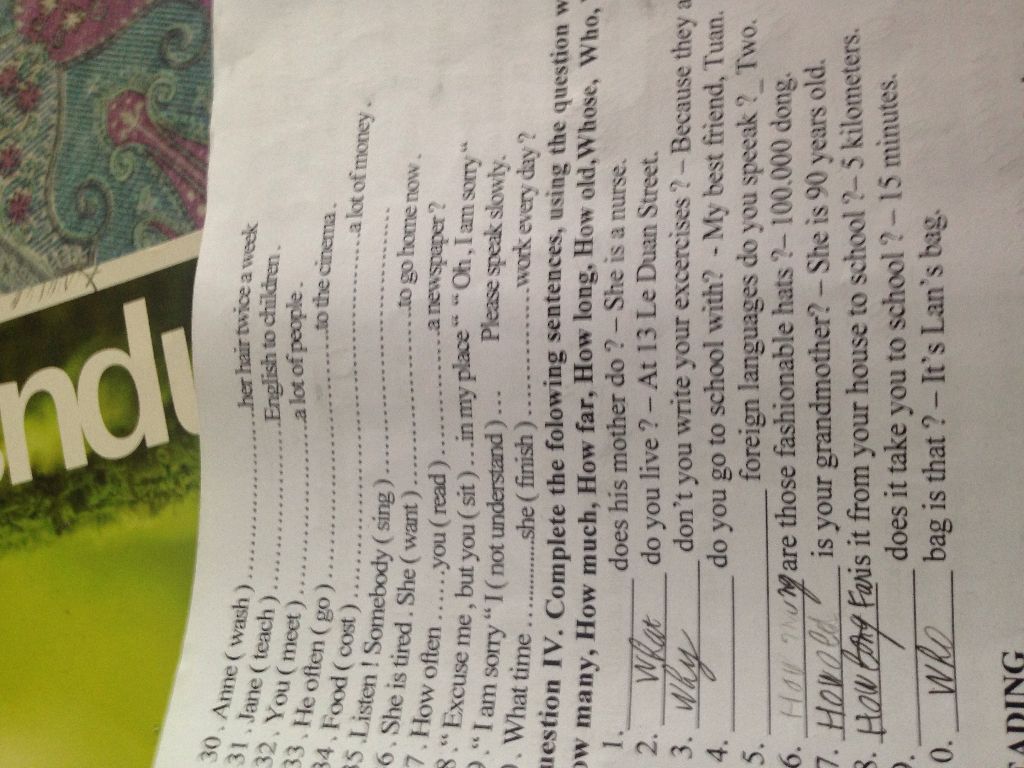 ndu
30 . Anne ( wash ) ................................her hair twice a week
31 . Jane ( teach ) ................................ English to children .
32 . You ( meet ) ................................a lot of people .
33 . He often ( go ) ................................to the cinema .
34 . Food ( cost ) ................................a lot of money .
35 Listen ! Somebody ( sing ) ................................
6 . She is tired . She ( want ) ................................to go home now .
7 . How often ..... you ( read ) ................................a newspaper ?
8 . " Excuse me , but you ( sit ) ....in my place " " Oh , I am sorry "
9 . " I am sorry " I ( not understand ) ... Please speak slowly.
0 . What time ............she ( finish ) ................................work every day ?
uestion IV . Complete the folowing sentences, using the question w
ow many, How much, How far, How long, How old, Whose, Who,
1. ________ does his mother do ? – She is a nurse.
2. What do you live ? – At 13 Le Duan Street.
3. Why don't you write your excercises ? – Because they a
4. ________ do you go to school with? - My best friend, Tuan.
5. ________ foreign languages do you speak ?_ Two.
6. How are those fashionable hats ?– 100.000 dong.
7. How old is your grandmother? – She is 90 years old.
8. How Far is it from your house to school ?– 5 kilometers.
9. ________ does it take you to school ? – 15 minutes.
0. Who bag is that ? – It's Lan's bag.
EADING